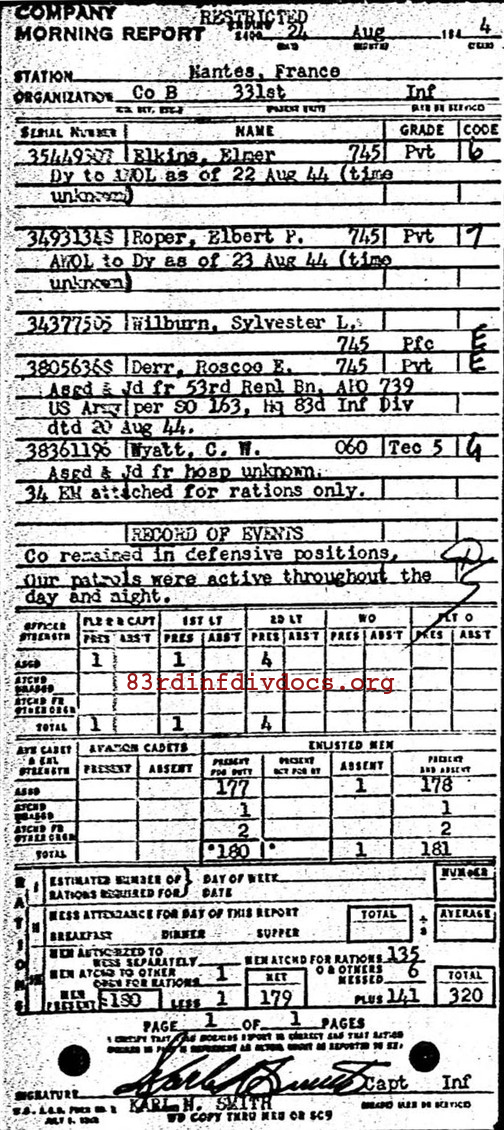 COMPANY RESTRICTED
MORNING REPORT ENDING 2400 24 Aug 194 4
DATE (MONTH)
STATION Nantes, France
ORGANIZATION Co B 331st Inf
SERIAL NUMBER NAME GRADE CODE
35449307 Elkins, Elmer 745 Pvt 6
Dy to AWOL as of 22 Aug 44 (time
unknown)
34931348 Roper, Elbert P. 745 Pvt 7
AWOL to Dy as of 23 Aug 44 (time
unknown)
34377505 Wilburn, Sylvester L.
745 Pfc E
38056368 Derr, Roscoe E. 745 Pvt E
Asgd & Jd fr 53rd Repl Bn, APO 739
US Army per SO 163, Hq 83d Inf Div
dtd 20 Aug 44.
38361196 Wyatt, C. W. 060 Tec 5 G
Asgd & Jd fr hosp unknown.
34 EM attached for rations only.
RECORD OF EVENTS
Co remained in defensive positions,
Our patrols were active throughout the
day and night.
OFFICER STRENGTH 1ST LT 2D LT WO FLT O
PRES ABS'T PRES ABS'T PRES ABS'T PRES ABS'T PRES ABS'T
ASGD 1 1 4
ATCHD UNASGD
83rdinfdivdocs.org
ATCHD FR OTHER ORGN
TOTAL 1 1 4
AVN CADET & ENL STRENGTH AVIATION CADETS ENLISTED MEN
PRESENT ABSENT PRESENT FOR DUTY PRESENT NOT FOR DY ABSENT PRESENT AND ABSENT
ASGD 177 1 178
ATCHD UNASGD 1 1
ATCHD FR OTHER ORGN 2 2
TOTAL 180 1 181
RATIONS
ESTIMATED NUMBER OF RATIONS REQUIRED FOR } DAY OF WEEK NUMBER
DATE
MESS ATTENDANCE FOR DAY OF THIS REPORT TOTAL ÷ 3 AVERAGE
BREAKFAST DINNER SUPPER
MEN AUTHORIZED TO MESS SEPARATELY MEN ATCHD FOR RATIONS 135
MEN ATCHD TO OTHER ORGN FOR RATIONS 1 NET O & OTHERS MESSED 6 TOTAL
MEN PRESENT 180 LESS 1 179 PLUS 141 320
PAGE 1 OF 1 PAGES
Capt Inf
SIGNATURE KARL N. SMITH
W.D., A.G.O. FORM NO. 1
WD COPY THRU MRU OR SC9